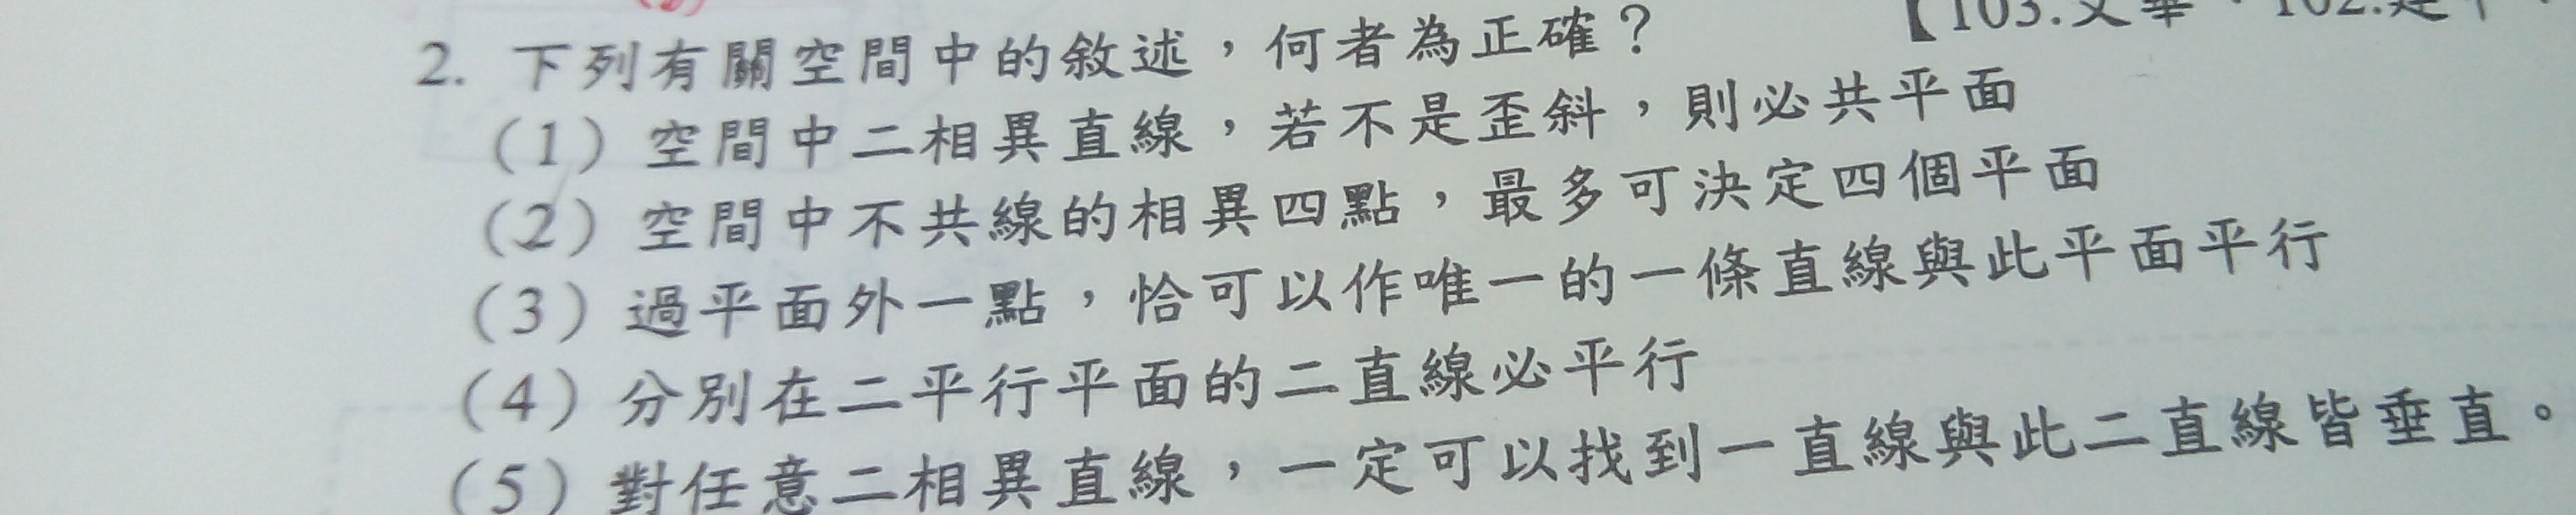 【103.文華、102.建中、
2. 下列有關空間中的敘述，何者為正確？
（1）空間中二相異直線，若不是歪斜，則必共平面
（2）空間中不共線的相異四點，最多可決定四個平面
（3）過平面外一點，恰可以作唯一的一條直線與此平面平行
（4）分別在二平行平面的二直線必平行
（5）對任意二相異直線，一定可以找到一直線與此二直線皆垂直。